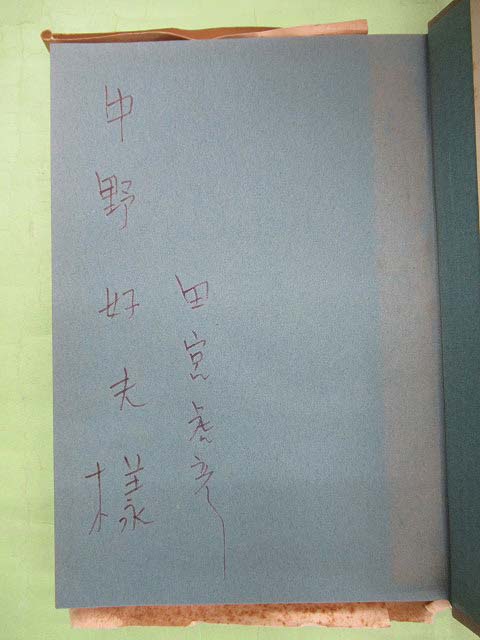 田宮虎彦
中野好夫様